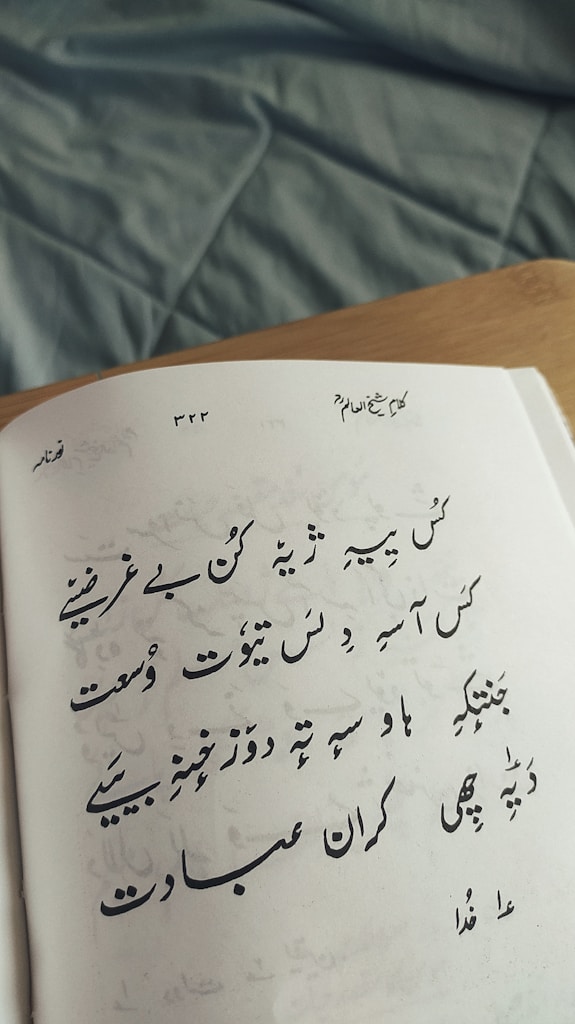 کلامِ شیخ العالمؒ ۳۲۲ نورنامہ
کُس یِیہِ ژیہِ کُن بے غرضیٔے
کَس آسہِ دِلَس تیوٗت وُسعت
جَنتٕکہِ ہاوسہٕ تہٕ دوٚزخٕنہِ بییَے
دَپہٕ ۱؎ چِھی کران عبادت
۱؎ خُدا